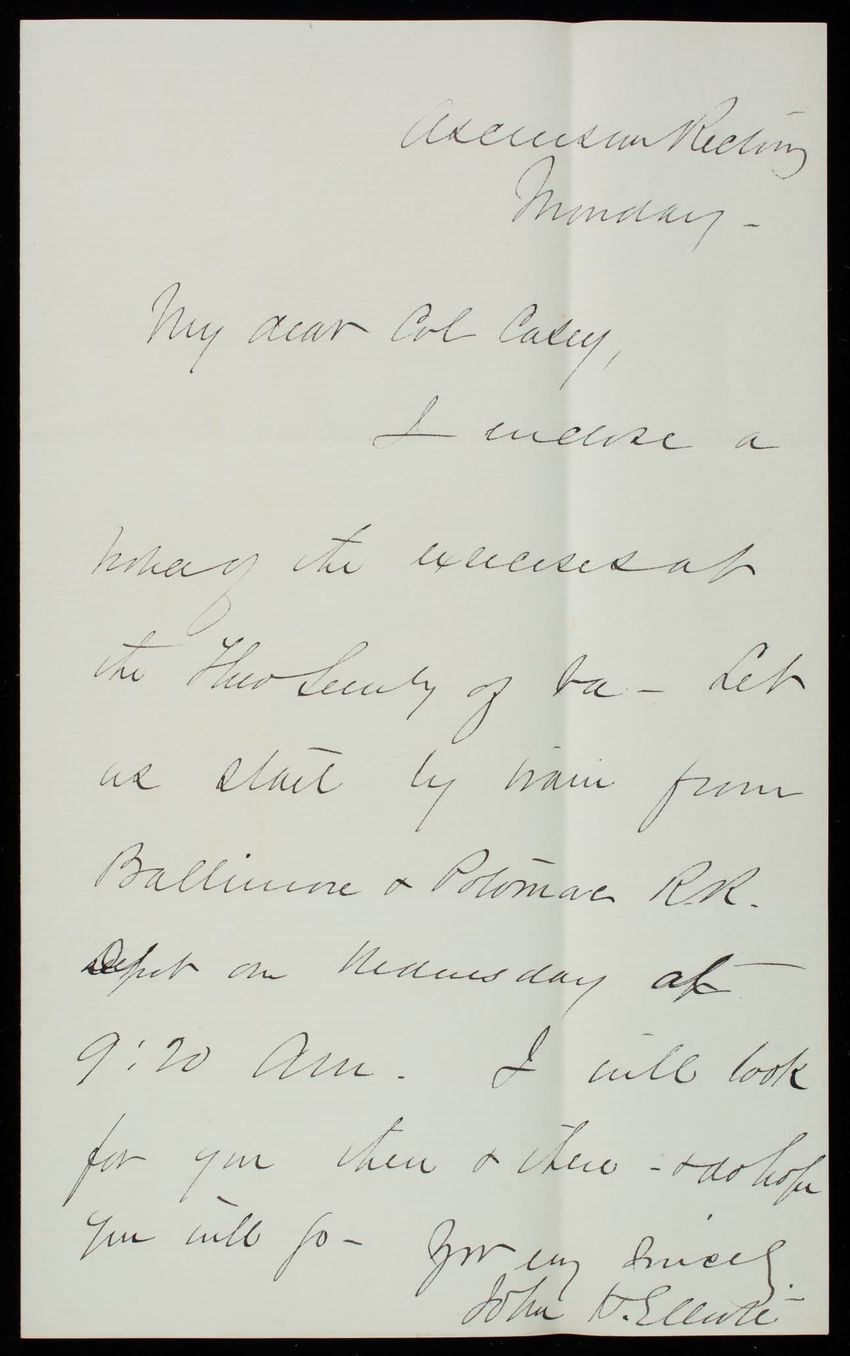 Ascension Rectory
Monday -
My dear Col Casey,
I enclose a
notice of the exercises at
the Theo Seminary of Va - Let
us start by train from
Baltimore & Potomac R.R.
Depot on Wednesday at
9:20 Am. I will look
for you then & there - & do hope
you will go - Yrs very sincerely
John H. Elliott